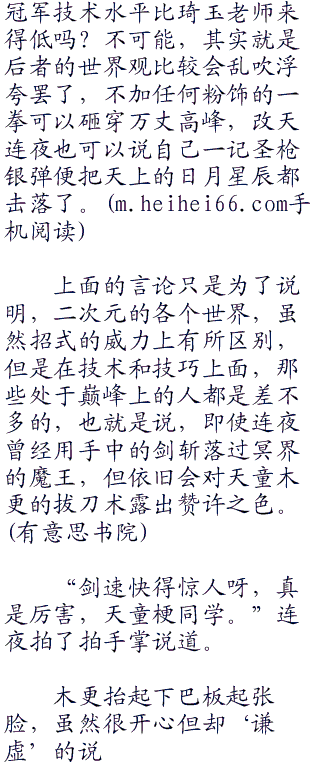 冠军技术水平比琦玉老师来
得低吗？不可能，其实就是
后者的世界观比较会乱吹浮
夸罢了，不加任何粉饰的一
拳可以砸穿万丈高峰，改天
连夜也可以说自己一记圣枪
银弹便把天上的日月星辰都
击落了。(m.heihei66.com手
机阅读)
上面的言论只是为了说
明，二次元的各个世界，虽
然招式的威力上有所区别，
但是在技术和技巧上面，那
些处于巅峰上的人都是差不
多的，也就是说，即使连夜
曾经用手中的剑斩落过冥界
的魔王，但依旧会对天童木
更的拔刀术露出赞许之色。
(有意思书院)
“剑速快得惊人呀，真
是厉害，天童梗同学。”连
夜拍了拍手掌说道。
木更抬起下巴板起张
脸，虽然很开心但却‘谦
虚’的说